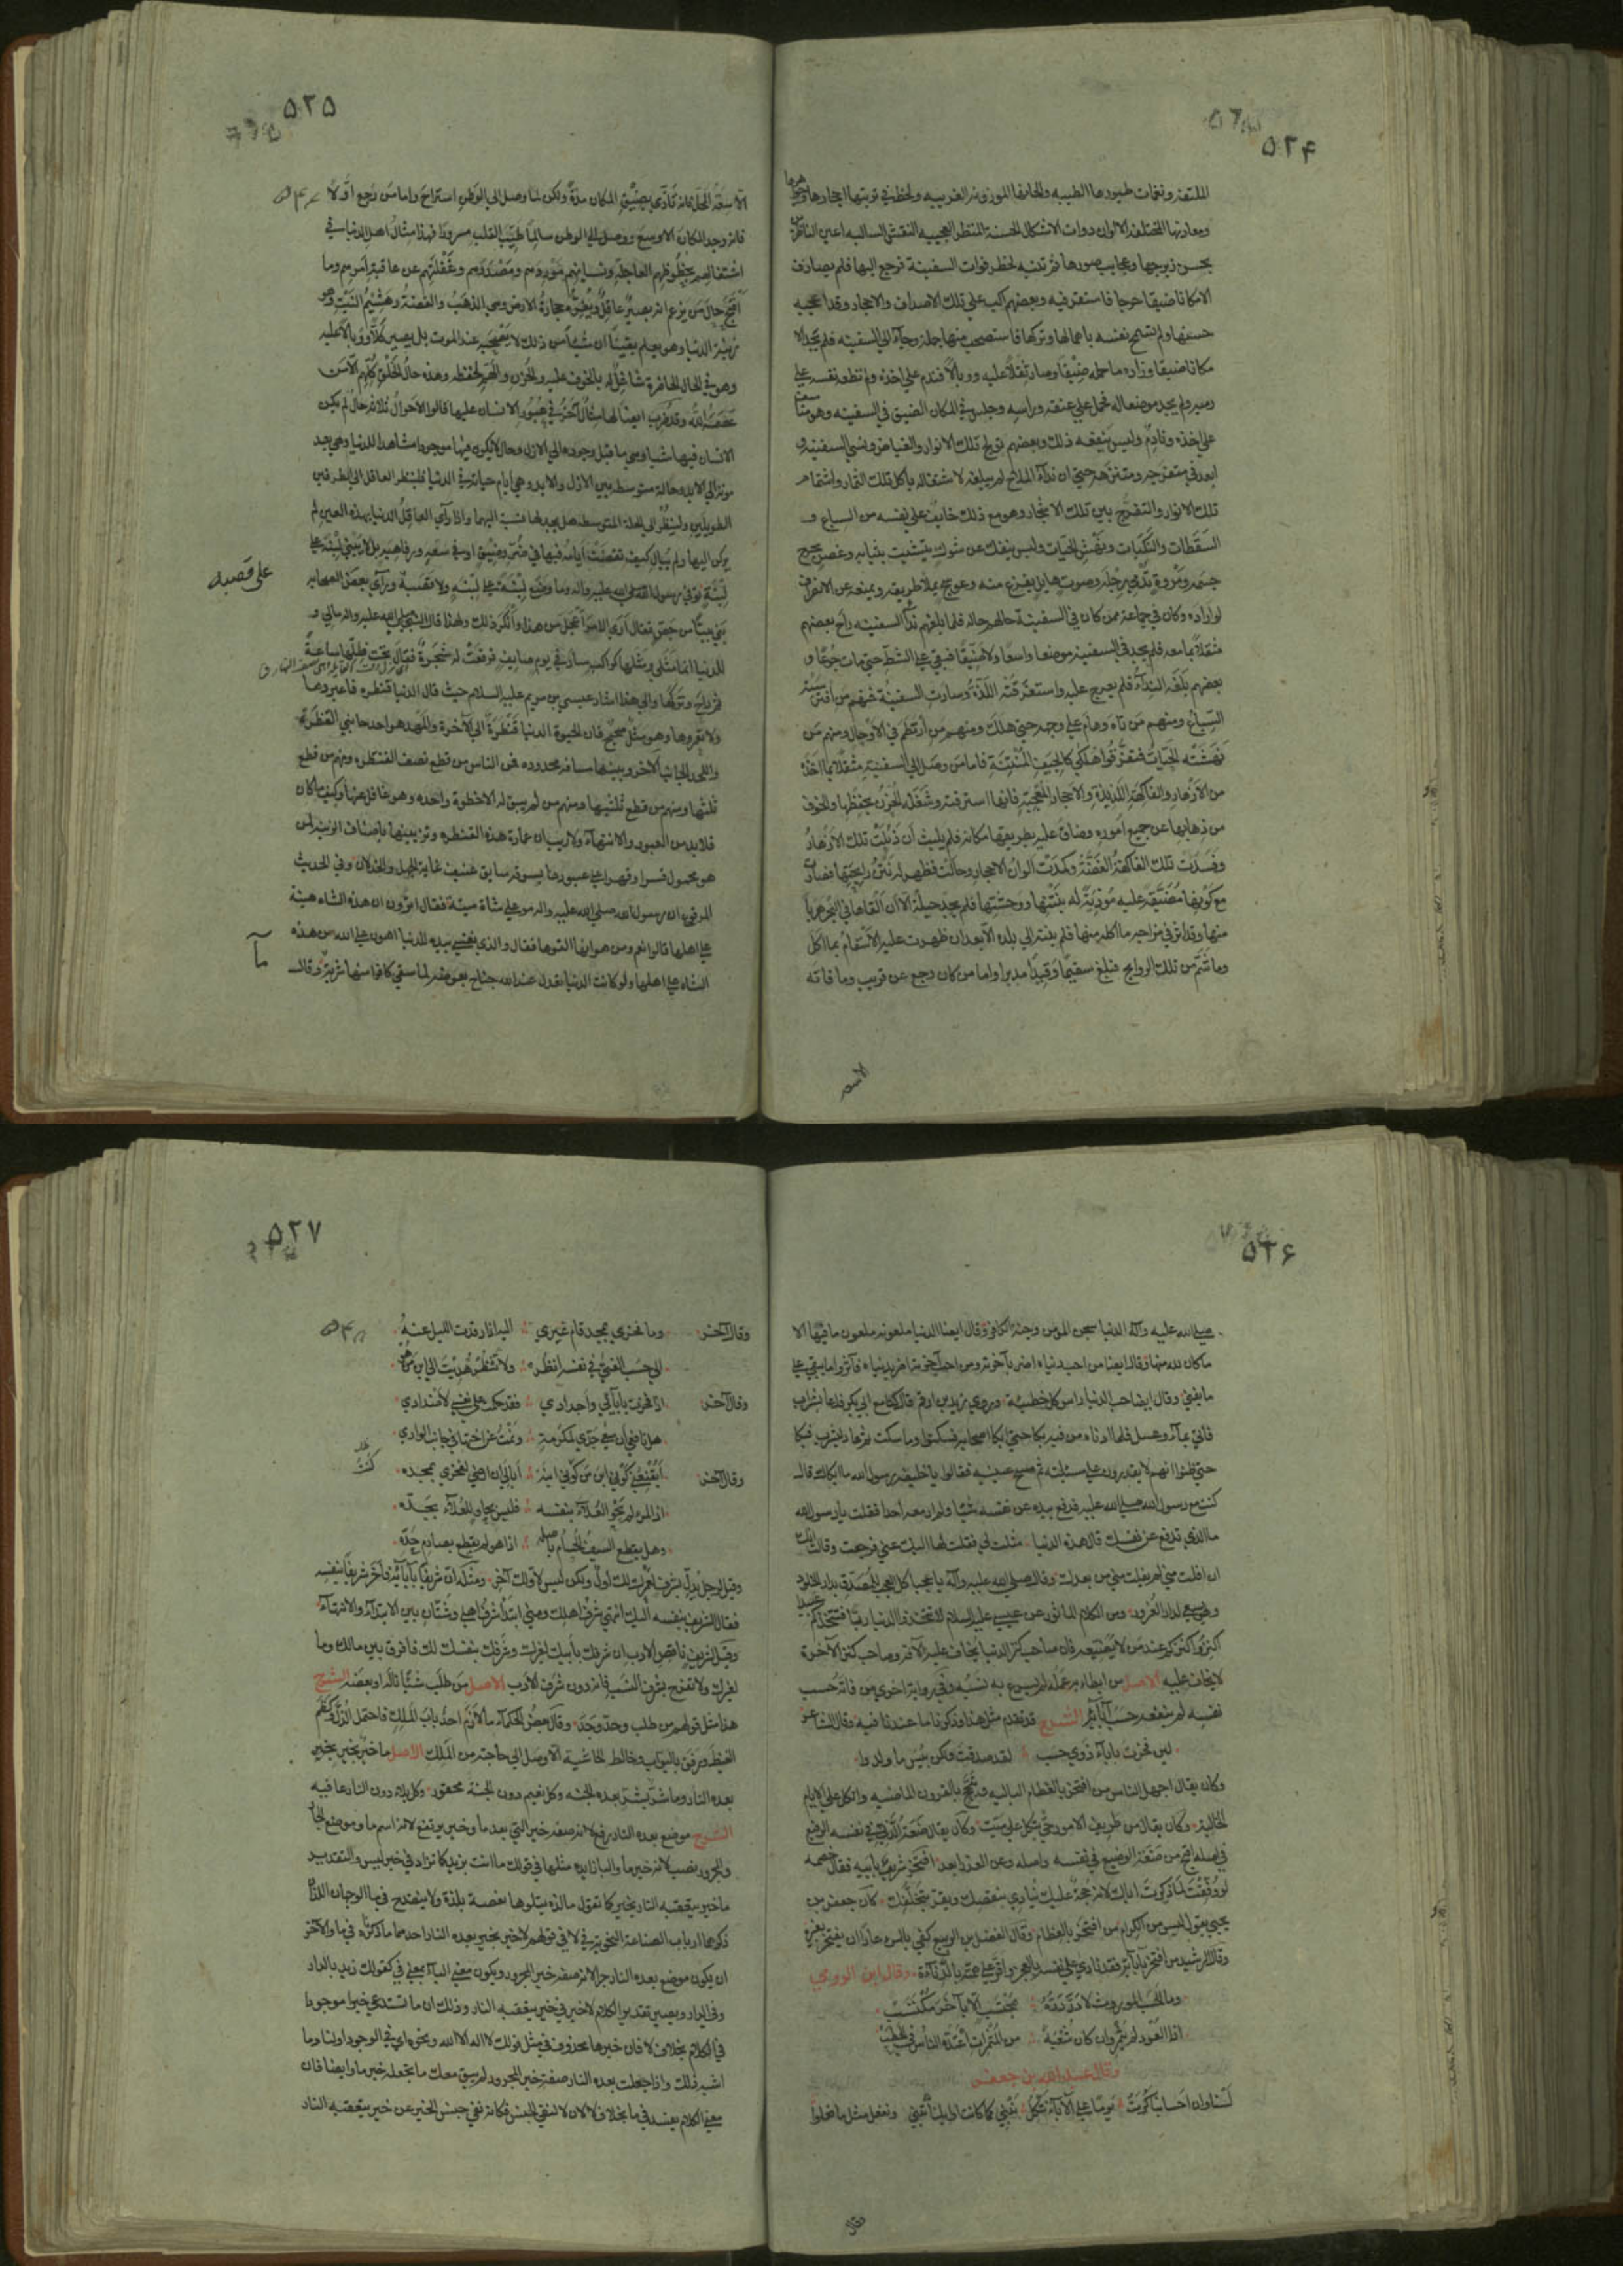 ۵۲۴
الملتفة ونغمات طيورها الطيبة والحانها الموزونة الغريبة ولحظ في تربتها احجارها وجواهرها
ومعادنها المختلفة الالوان ذوات الاشكال الحسنة المنظر العجيبة النقش السالبة اعين الناظرين
بحسن زبرجها وعجايب صورها ثم تنبه لخطر فوات السفينة فرجع اليها فلم يصادف
الا مكانا ضيقا حرجا فاستقر فيه وبعضهم اكب على تلك الاصداف والاحجار وقد اعجبه
حسنها ولم تسمح نفسه باهمالها وتركها فاستصحب منها جملة وجاء الى السفينة فلم يجد الا
مكانا ضيقا وزاده ما حمله ضيقا وصار ثقلا عليه ووبالا فندم على اخذه ولم تطعه نفسه على
رميه ولم يجد موضعا له فحمله على عنقه وراسه وجلس في المكان الضيق في السفينة وهو متأسف
على اخذه ونادم وليس ينفعه ذلك وبعضهم تولج تلك الانوار والغياض ونسي السفينة و
ابعد في متفرجه ومتنزهه حتى ان نداء الملاح لم يبلغه لاشتغاله باكل تلك الثمار واشتمامه
تلك الانوار والتفرج بين تلك الاشجار وهو مع ذلك خايف على نفسه من السباع و
السقطات والنكبات ونهش الحيات وليس ينفك عن شوك يتشبث بثيابه وغصن يجرح
جسمه ومروة تدمي رجله وصوت هايل يفزع منه وعوسج يملا طريقه ويمنعه عن الانصراف
لو اراده وكان في جماعة ممن كان في السفينة حالهم حاله فلما بلغهم نداء السفينة راح بعضهم
مثقلا بما معه فلم يجد في السفينة موضعا واسعا ولا ضيقا فبقي على الشط حتى مات جوعا و
بعضهم بلغه النداء فلم يعرج عليه واستغرقته اللذة وسارت السفينة فمنهم من افترسته
السباع ومنهم من تاه وهام على وجهه حتى هلك ومنهم من ارتطم في الاوحال ومنهم من
نهشته الحيات فتفرقوا هلكى كالجيف المنتنة فاما من وصل الى السفينة مثقلا بما اخذه
من الازهار والفاكهة اللذيذة والاحجار المعجبة فانها استرقته وشغله الحزن بحفظها والخوف
من ذهابها عن جميع اموره وضاق عليه بطريقها مكانه فلم يلبث ان ذبلت تلك الازهار
وفسدت تلك الفاكهة الغضة وكمدت الوان الاحجار وحالت فظهر له نتن رايحتها فصارت
مع كونها مضيقة عليه مؤذية له بنتنها ووحشتها فلم يجد حيلة الا ان القاها في البحر هربا
منها وقد اثر في مزاجه ما اكله منها فلم ينته الى بلده الا بعد ان ظهرت عليه الاسقام بما اكل
وما شم من تلك الروايح فبلغ سقيما وقيذا مدبرا واما من كان رجع عن قريب وما فاته
۵۲۵
الا سعة المحل فانه تاذى بضيق المكان مدة ولكن لما وصل الى الوطن استراح واما من رجع اولا
فانه وجد المكان الاوسع ووصل الى الوطن سالما طيب القلب مسرورا فهذا مثال اهل الدنيا في
اشتغالهم بحظوظهم العاجلة ونسيانهم موردهم ومصدرهم وغفلتهم عن عاقبة امرهم وما
اقبح حال من يزعم انه بصير عاقل وتغره حجارة الارض وهي الذهب والفضة وهشيم النبت وهو
زينة الدنيا وهو يعلم يقينا ان شيئا من ذلك لا يصحبه عند الموت بل يصير كلا ووبالا عليه
وهو في الحال الحاضرة شاغل له بالخوف عليه والحزن والهم لحفظه وهذه حال الخلق كلهم الا من
عصمه الله وقد ضرب ايضا لها مثال آخر في عبور الانسان عليها قالوا الاحوال ثلاثة حال لم يكن
الانسان فيها شيا وهي ما قبل وجوده الى الازل وحال لا يكون فيها موجودا مشاهدا للدنيا وهي بعد
موته الى الابد وحالة متوسطة بين الازل والابد وهي ايام حياته في الدنيا فلينظر العاقل الى الطرفين
الطويلين ولينظر الى الحالة المتوسطة هل يجد لها نسبة اليهما واذا رأى العاقل الدنيا بهذه العين لم
يركن اليها ولم يبال كيف تقضت ايامه فيها في ضر وضيق او في سعة ورفاهية بل لا يبني لبنة على
لبنة توفي رسول الله صلى الله عليه واله وما وضع لبنة على لبنة ولا قصبة ورآى بعض الصحابة
على قصبة
بنى بيتا من جص فقال ارى الامر اعجل من هذا وانكر ذلك ولهذا قال النبي صلى الله عليه واله مالي و
للدنيا انما مثلي ومثلها كراكب سار في يوم صايف فرفعت له شجرة فقال تحت ظلها ساعة
ثم راح وتركها والى هذا اشار عيسى بن مريم عليه السلام حيث قال الدنيا قنطرة فاعبروها
ولا تعمروها وهو مثل صحيح فان الحيوة الدنيا قنطرة الى الآخرة والمهد هو احد جانبي القنطرة
واللحد الجانب الآخر وبينهما مسافة محدودة فمن الناس من قطع نصف القنطرة ومنهم من قطع
ثلثها ومنهم من قطع ثلثيها ومنهم من لم يبق له الا خطوة واحدة وهو غافل عنها وكيف ما كان
فلا بد من العبور والانتهاء ولا ريب ان عمارة هذه القنطرة وتزيينها باصناف الزينة لمن
هو محمول قسرا وقهرا على عبورها يسوقه سايق عنيف غاية الجهل والخذلان وفي الحديث
المرفوع ان رسول الله صلى الله عليه واله مر على شاة ميتة فقال اترون ان هذه الشاة هينة
على اهلها قالوا نعم ومن هوانها القوها فقال والذي نفسي بيده للدنيا اهون على الله من هذه
الشاة على اهلها ولو كانت الدنيا تعدل عند الله جناح بعوضة لما سقى كافرا منها شربة وقال
۵۲۶
صلى الله عليه وآله الدنيا سجن المؤمن وجنة الكافر وقال ايضا الدنيا ملعونة ملعون ما فيها الا
ما كان لله منها وقال ايضا من احب دنياه اضر بآخرته ومن احب آخرته اضر بدنياه فآثروا ما يبقى على
ما يفنى وقال ايضا حب الدنيا راس كل خطيئة وروى زيد بن ارقم قال كنا مع ابي بكر فدعا بشراب
فاتي بماء وعسل فلما ادناه من فيه بكا حتى ابكا اصحابه فسكتوا وما سكت ثم عاد ليشرب فبكا
حتى ظنوا انهم لا يقدرون على مسئلته ثم مسح عينيه فقالوا يا خليفة رسول الله ما ابكاك قال
كنت مع رسول الله صلى الله عليه فدفع بيده عن نفسه شيئا ولم ار معه احدا فقلت يا رسول الله
ما الذي تدفع عن نفسك قال هذه الدنيا مثلت لي فقلت لها اليك عني فرجعت وقالت انك
ان افلت مني لم يفلت مني من بعدك وقال صلى الله عليه وآله يا عجبا كل العجب للمصدق بدار الخلود
وهو يسعى لدار الغرور ومن الكلام الماثور عن عيسى عليه السلام لا تتخذوا الدنيا ربا فتتخذكم عبيدا
اكنزوا كنزكم عند من لا يضيعه فان صاحب كنز الدنيا يخاف عليه الآفة وصاحب كنز الآخرة
لا يخاف عليه الاصل من ابطاء به عمله لم يسرع به نسبه وفي رواية اخرى من فاته حسب
نفسه لم ينفعه حسب آبائه الشرح قد تقدم مثل هذا وذكرنا ما عندنا فيه وقال الشاعر
لئن فخرت بآباء ذوي حسب لقد صدقت ولكن بئس ما ولدوا
وكان يقال اجهل الناس من افتخر بالعظام البالية وتبجح بالقرون الماضية واتكل على الايام
الخالية وكان يقال من طريف الامور حي يتكل على ميت وكان يقال ضعة الدني في نفسه الرفيع
في اصله اقبح من ضعة الوضيع في نفسه واصله وعن العذر ابعد افتخر شريف بابيه فقال خصمه
لو وفقت لما ذكرت اباك لانه حجة عليك تنادي بنقصك وبقر بتخلفك كان جعفر بن
يحيى يقول ليس من الكرام من افتخر بالعظام وقال الفضل بن الربيع كفى بالمرء عارا ان يفتخر بغيره
وقال الرشيد من افتخر بآبائه فقد نادى على نفسه بالعجز واقر على همته بالدناءة وقال ابن الرومي
وما الحسب الموروث لا در دره بمحتسب الا بآخر مكتسب
اذا العود لم يثمر وان كان شعبة من المثمرات اعتده الناس في الحطب
وقال عبد الله بن جعفر
لسنا وان احسابنا كرمت يوما على الآباء نتكل نبني كما كانت اوايلنا تبني ونفعل مثل ما فعلوا
وقال
۵۲۷
وقال آخر وما فخري بمجد قام غيري اليه اذا رقدت الليل عنه
الى حسب الفتى في نفسه انظر ولا تنظر هديت الى ابن من هو
وقال آخر اذا فخرت بآبائي واجدادي فقد حكمت على نفسي لاضدادي
هل نافعي ان سعى جدي لمكرمة ونمت عن اختها في جانب الوادي
وقال آخر ايقنعني كوني ابن من كوني ابنه ابا لي ان ارضى لفخري بمجده
اذا المرء لم يحو العلاء بنفسه فليس بحاو للعلاء بجده
وهل يقطع السيف الحسام باصله اذا هو لم يقطع بصارم حده
وقيل لرجل يدل بشرف آبائه لعمري لك اول ولكن ليس لاولك آخر ومثله ان شريفا بآبائه فاخر شريفا بنفسه
فقال الشريف بنفسه اليك انتهى شرف اهلك ومني ابتدأ شرف اهلي وشتان بين الابتداء والانتهاء
وقيل لشريف ناقص الادب ان شرفك بابيك لغيرك وشرفك بنفسك لك فافرق بين مالك وما
لغيرك ولا تفرح بشرف النسب فانه دون شرف الادب الاصل من طلب شيئا ناله او بعضه الشرح
هذا مثل قولهم من طلب وجد وجد وقال بعض الحكماء ما لازم احد باب الملك فاحتمل الذل وكظم
الغيظ ورفق بالبواب وخالط الحاشية الا وصل الى حاجته من الملك الاصل ما خير بخير
بعده النار وما شر بشر بعده الجنة وكل نعيم دون الجنة محقور وكل بلاء دون النار عافية
الشرح موضع بعده النار رفع لانه صفة خير الذي بعد ما وخير يرتفع لانه اسم ما وموضع الجار
والمجرور نصب لانه خبر ما والباء زايدة مثلها في قولك ما انت بزيد كما تزاد في خبر ليس والتقدير
ما خير يعقبه النار بخير كما تقول ما لذة يتلوها نغصة بلذة ولا ينقدح في ما الوجهان اللذان
ذكرهما ارباب الصناعة النحوية في لا في قولهم لا خير بخير بعده النار احدهما ما ذكرناه في ما والآخر
ان يكون موضع بعده النار جرا لانه صفة خير المجرور ويكون معنى الباء معنى في كقولك زيد بالدار
وفي الدار ويصير تقدير الكلام لا خير في خير يعقبه النار وذلك ان ما تستدعي خبرا موجودا
في الكلام بخلاف لا فان خبرها محذوف في مثل قولك لا اله الا الله ونحوه اي في الوجود او لنا وما
اشبه ذلك واذا جعلت بعده النار صفة خير المجرور لم يبق معك ما تجعله خبر ما وايضا فان
معنى الكلام يفسد في ما بخلاف لا لان لا لنفي الجنس فكانه نفى جنس الخير عن خير يعقبه النار